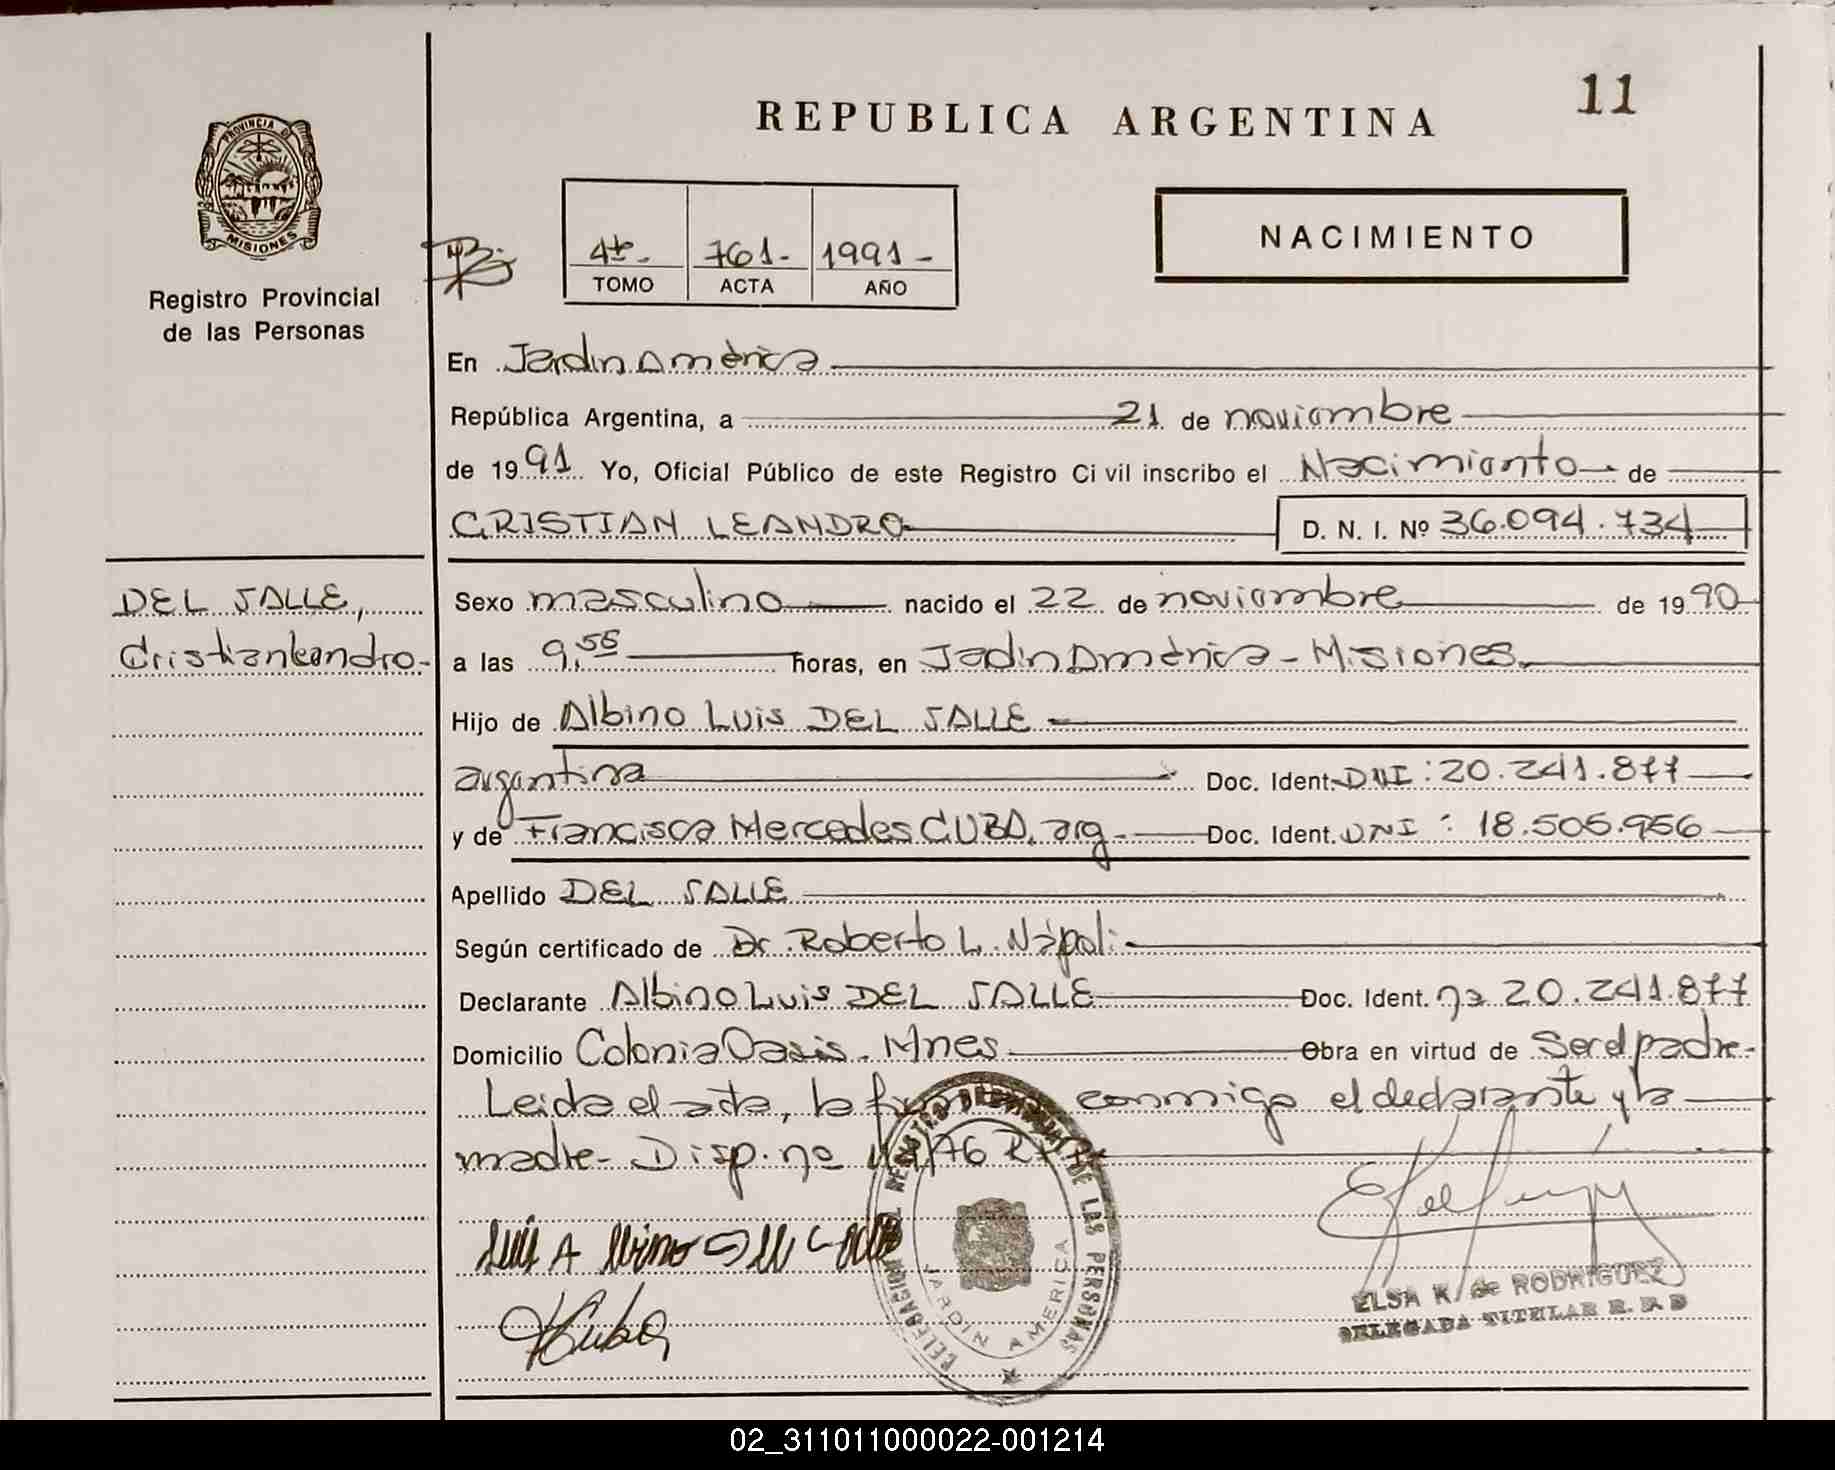 11
REPUBLICA ARGENTINA
PROVINCIA DE
MISIONES
Registro Provincial
de las Personas
4to- 761- 1991-
TOMO ACTA AÑO
NACIMIENTO
En Jardin América
República Argentina, a 21 de noviembre
de 1991 Yo, Oficial Público de este Registro Ci vil inscribo el Nacimiento de
CRISTIAN LEANDRO D. N. I. Nº 36.094.734
DEL SALLE,
Cristian Leandro-
Sexo masculino nacido el 22 de noviembre de 1990
a las 9,55 horas, en Jadin América - Misiones
Hijo de Albino Luis DEL SALLE
argentina Doc. Ident. DNI: 20.241.877
y de Francisca Mercedes CUBA, arg- Doc. Ident. DNI: 18.505.956
Apellido DEL SALLE
Según certificado de Dr. Roberto L. Nápoli
Declarante Albino Luis DEL SALLE Doc. Ident. nº 20.241.877
Domicilio Colonia Oasis - Mnes Obra en virtud de Ser el padre-
Leida el acta, la conmigo el declarante y la
madre- Disp. nº /76 R
DELEGACION REGISTRO PROVINCIAL DE LAS PERSONAS
JARDIN AMERICA
Cuba
ELSA K. de RODRIGUEZ
DELEGADA TITULAR R. P. P
02_311011000022-001214